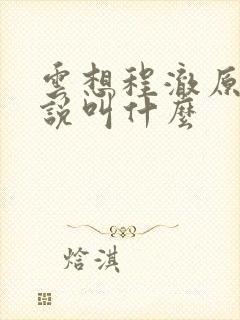 雲想程澈原
說叫什麼
焓淇